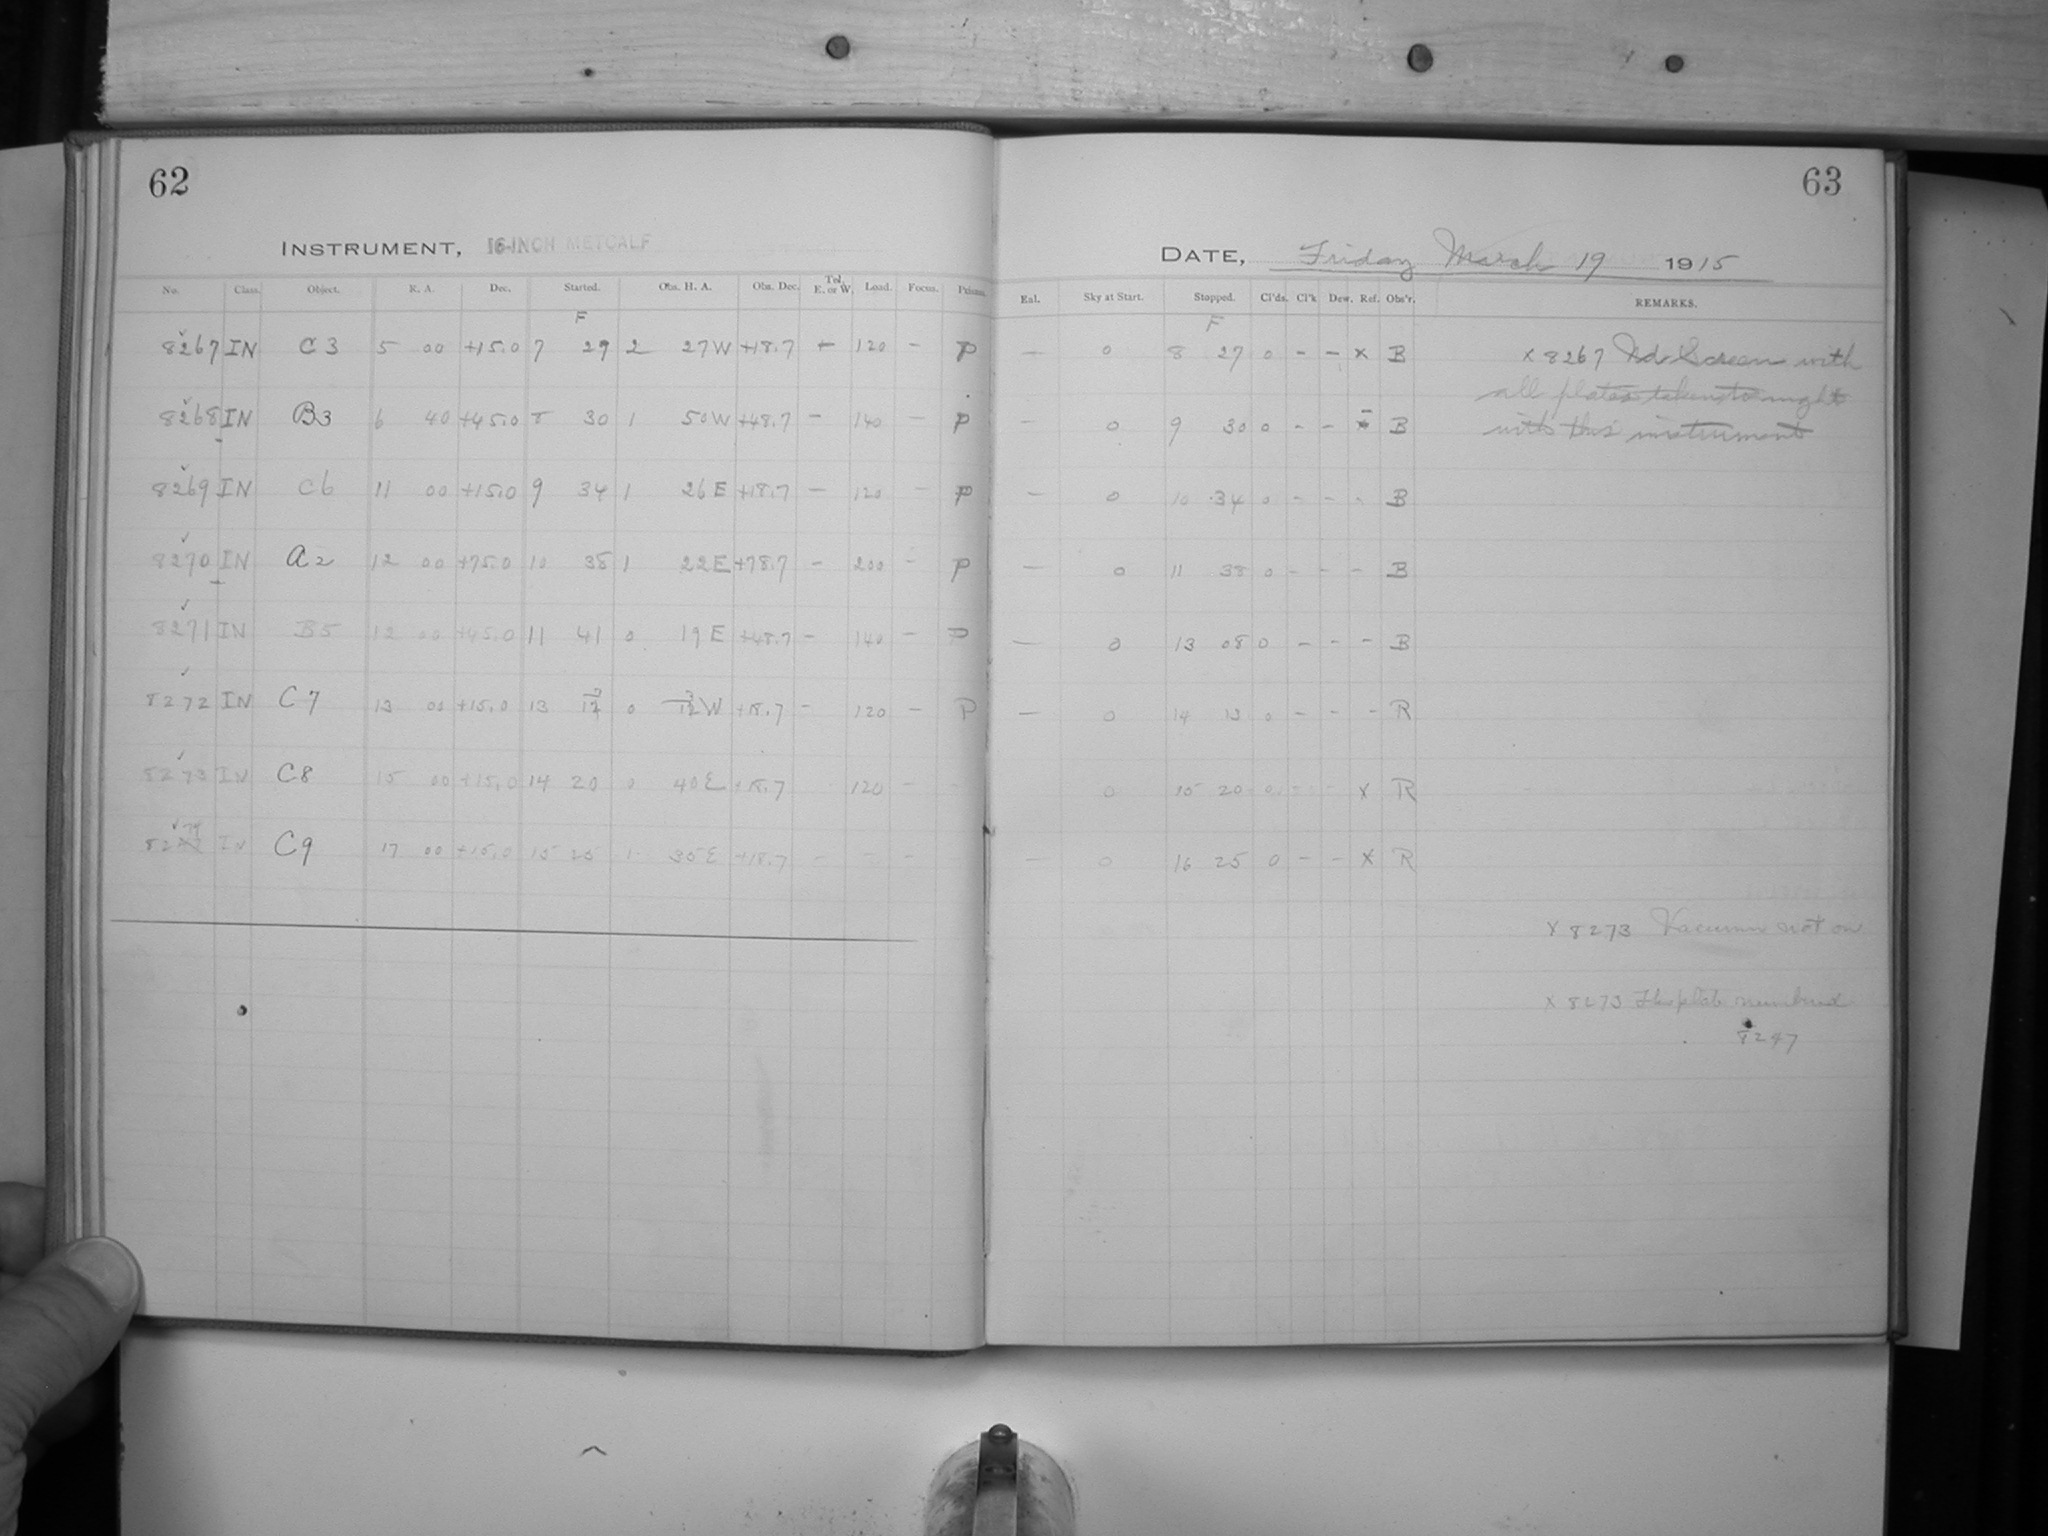 62
63
INSTRUMENT, 16-INCH METCALF
DATE, Friday March 19 1915
No. Class. Object. R. A. Dec. Started. Obs. H. A. Obs. Dec. Tel. E. or W. Load. Focus. Prisms. Eal. Sky at Start. Stopped. Cl'ds. Cl'k Dew. Ref. Obs'r. REMARKS.
F F
8267 IN C3 5 00 +15.0 7 29 2 27 W +18.7 - 120 - P — 0 8 27 0 - - x B x 8267 Nd Screen with
all plates taken to night
8268 IN B3 6 40 +45.0 8 30 1 50 W +48.7 - 140 - P - 0 9 30 0 - - - B with this instrument
8269 IN C6 11 00 +15.0 9 34 1 26 E +18.7 - 120 - P - 0 10 34 0 - - - B
8270 IN A2 12 00 +75.0 10 38 1 22 E +78.7 - 200 - P — 0 11 38 0 - - - B
8271 IN B5 12 00 +45.0 11 41 0 19 E +48.7 - 140 - P — 0 13 08 0 - - - B
8272 IN C7 13 00 +15.0 13 12 0 12 W +18.7 - 120 - P — 0 14 13 0 - - - R
8273 IN C8 15 00 +15.0 14 20 0 40 E +18.7 120 - - 0 15 20 0 - - x R
8274 IN C9 17 00 +15.0 15 25 1 35 E +18.7 - - - 0 16 25 0 - - x R
x 8273 Vacuum not on
x 8273 This plate numbered
8247